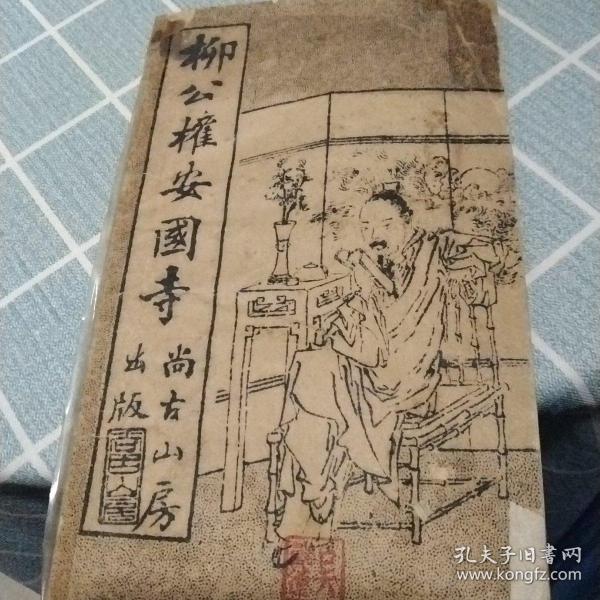 柳公權安國寺
尚古山房
出版
孔夫子旧书网
www.kongfz.com